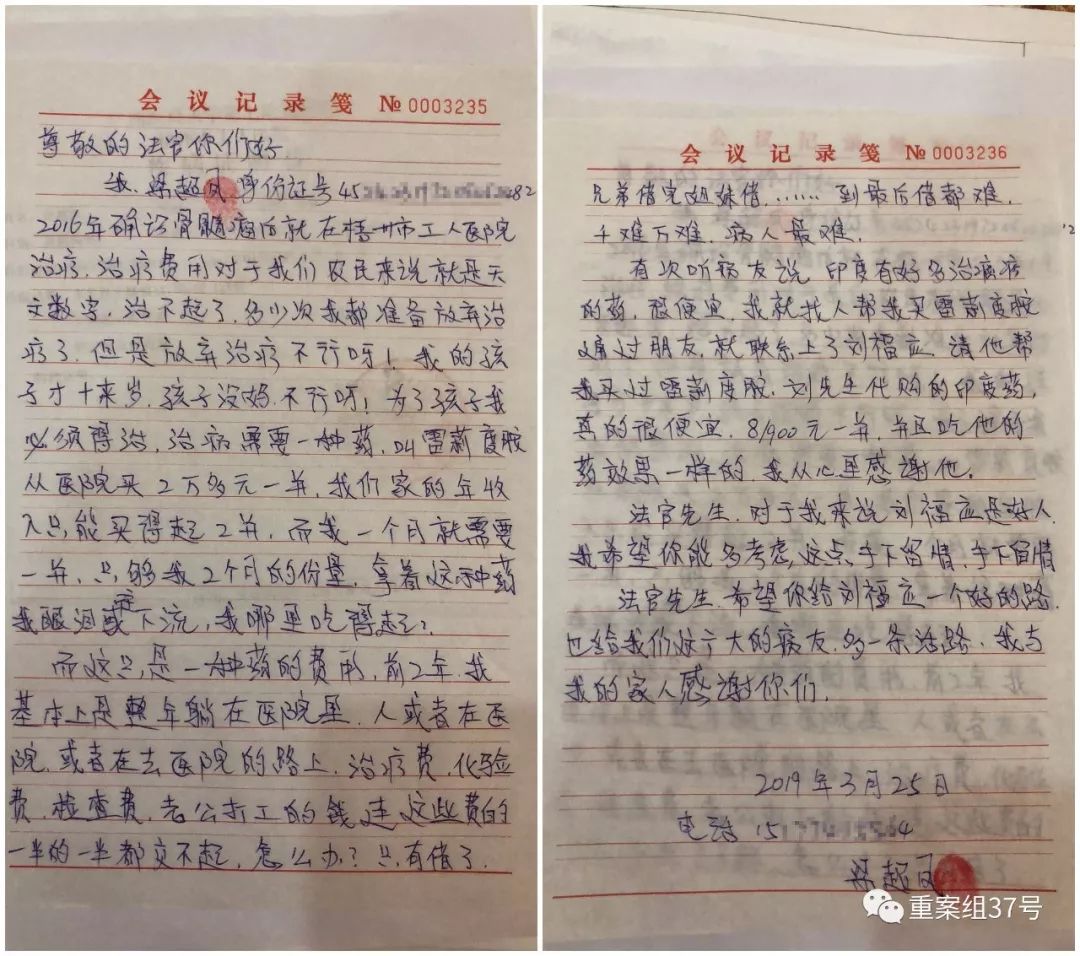 会议记录笺 № 0003235
尊敬的法官你们好
我.梁超凤 身份证号45 82
2016年确诊骨髓瘤后就在梧州市工人医院
治疗.治疗费用对于我们农民来说就是天
文数字,治不起了.多少次我都准备放弃治
疗了.但是放弃治疗不行呀!我的孩
子才十来岁.孩子没妈.不行呀!为了孩子我
必须得治,治病需要一种药,叫雷莉度胺
从医院买2万多元一并,我们家的年收
入只能买得起2并,而我一个月就需要
一并.只够我2个月的份量,拿着这种药
我眼泪往下流,我哪里吃得起?
而这只是一种药的费用,前2年.我
基本上是整年躺在医院里.人或者在医
院.或者在去医院的路上.治疗费.化验
费.检查费.老公打工的钱连这些费的
一半的一半都交不起.怎么办?只有借了.
会议记录笺 № 0003236
兄弟借完姐妹借……到最后借都难.
千难万难.病人最难.
有次听病友说.印度有好多治病
的药.很便宜.我就找人帮我买雷莉度胺
通过朋友.就联系上了刘福应.请他帮
我买过雷莉度胺.刘先生代购的印度药,
真的很便宜.8/900元一并.并且吃他的
药效果一样的.我从心里感谢他.
法官先生.对于我来说刘福应是好人.
我希望你能多考虑这点.手下留情.手下留情
法官先生.希望你给刘福应一个好的路.
也给我们这广大的病友.多一条活路.我与
我的家人感谢你们.
2019年3月25日
电话 15
梁超凤
重案组37号